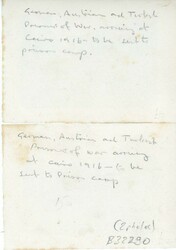 German, Austrian and Turkish
Prisoners of War, arriving at
Cairo 1916 - to be sent to
prison camp.
German, Austrian and Turkish
Prisoners of war arriving
at Cairo 1916 - to be
sent to Prison camp
B37290